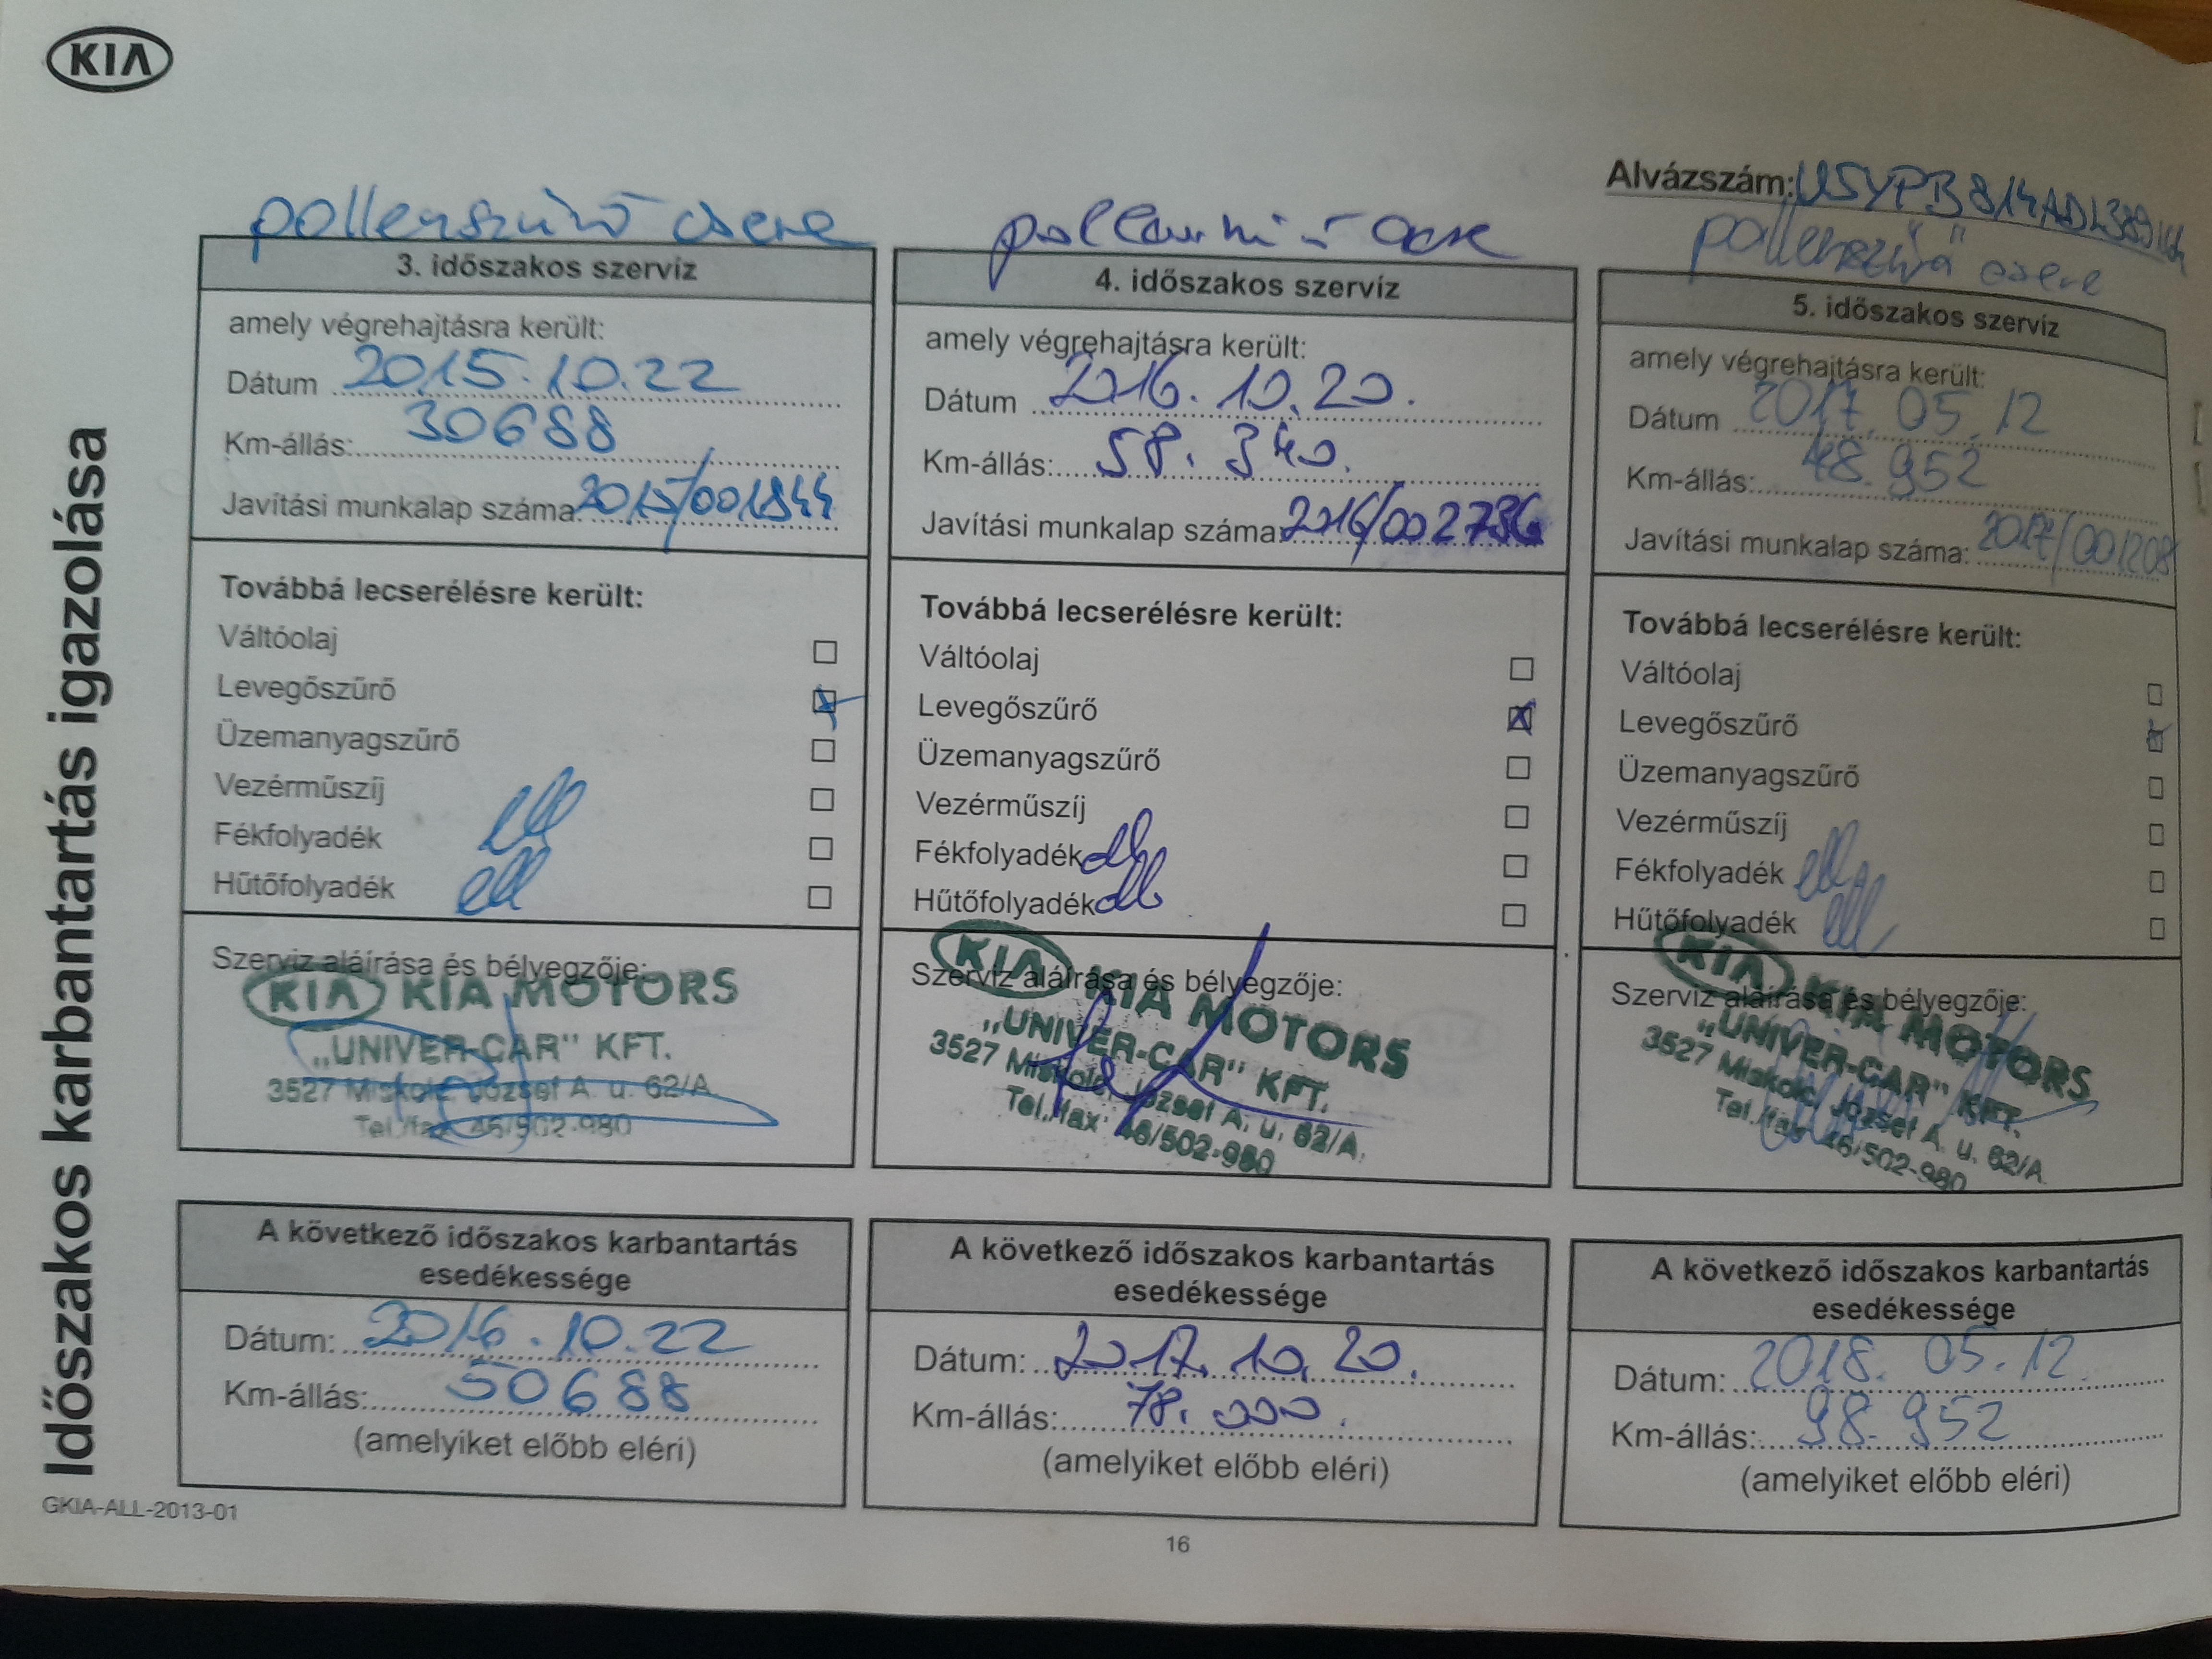 KIA
Időszakos karbantartás igazolása
Alvázszám:
pollenszűrő csere
3. időszakos szervíz
amely végrehajtásra került:
Dátum 2015.10.22
Km-állás: 30688
Javítási munkalap száma: 2015/001844
Továbbá lecserélésre került:
Váltóolaj
Levegőszűrő
Üzemanyagszűrő
Vezérműszíj
Fékfolyadék ell
Hűtőfolyadék ell
Szerviz aláírása és bélyegzője:
KIA KIA MOTORS
„UNIVER-CAR" KFT.
3527 Miskolc, József A. u. 62/A.
Tel./fax: 46/502-980
A következő időszakos karbantartás
esedékessége
Dátum: 2016.10.22
Km-állás: 50688
(amelyiket előbb eléri)
4. időszakos szervíz
amely végrehajtásra került:
Dátum 2016.10.20.
Km-állás: 58.340.
Javítási munkalap száma: 2016/002736
Továbbá lecserélésre került:
Váltóolaj
Levegőszűrő
Üzemanyagszűrő
Vezérműszíj
Fékfolyadék
Hűtőfolyadék
Szerviz aláírása és bélyegzője:
KIA KIA MOTORS
„UNIVER-CAR" KFT.
3527 Miskolc, József A. u. 62/A.
Tel./fax: 46/502-980
A következő időszakos karbantartás
esedékessége
Dátum: 2017.10.20.
Km-állás: 78.000.
(amelyiket előbb eléri)
pollenszűrő csere
5. időszakos szervíz
amely végrehajtásra került:
Dátum 2017.05.12
Km-állás: 48.952
Javítási munkalap száma: 2017/001208
Továbbá lecserélésre került:
Váltóolaj
Levegőszűrő
Üzemanyagszűrő
Vezérműszíj
Fékfolyadék ell
Hűtőfolyadék ell
Szerviz aláírása és bélyegzője:
KIA KIA MOTORS
„UNIVER-CAR" KFT.
3527 Miskolc, József A. u. 62/A.
Tel./fax: 46/502-980
A következő időszakos karbantartás
esedékessége
Dátum: 2018.05.12.
Km-állás: 98.952
(amelyiket előbb eléri)
GKIA-ALL-2013-01
16